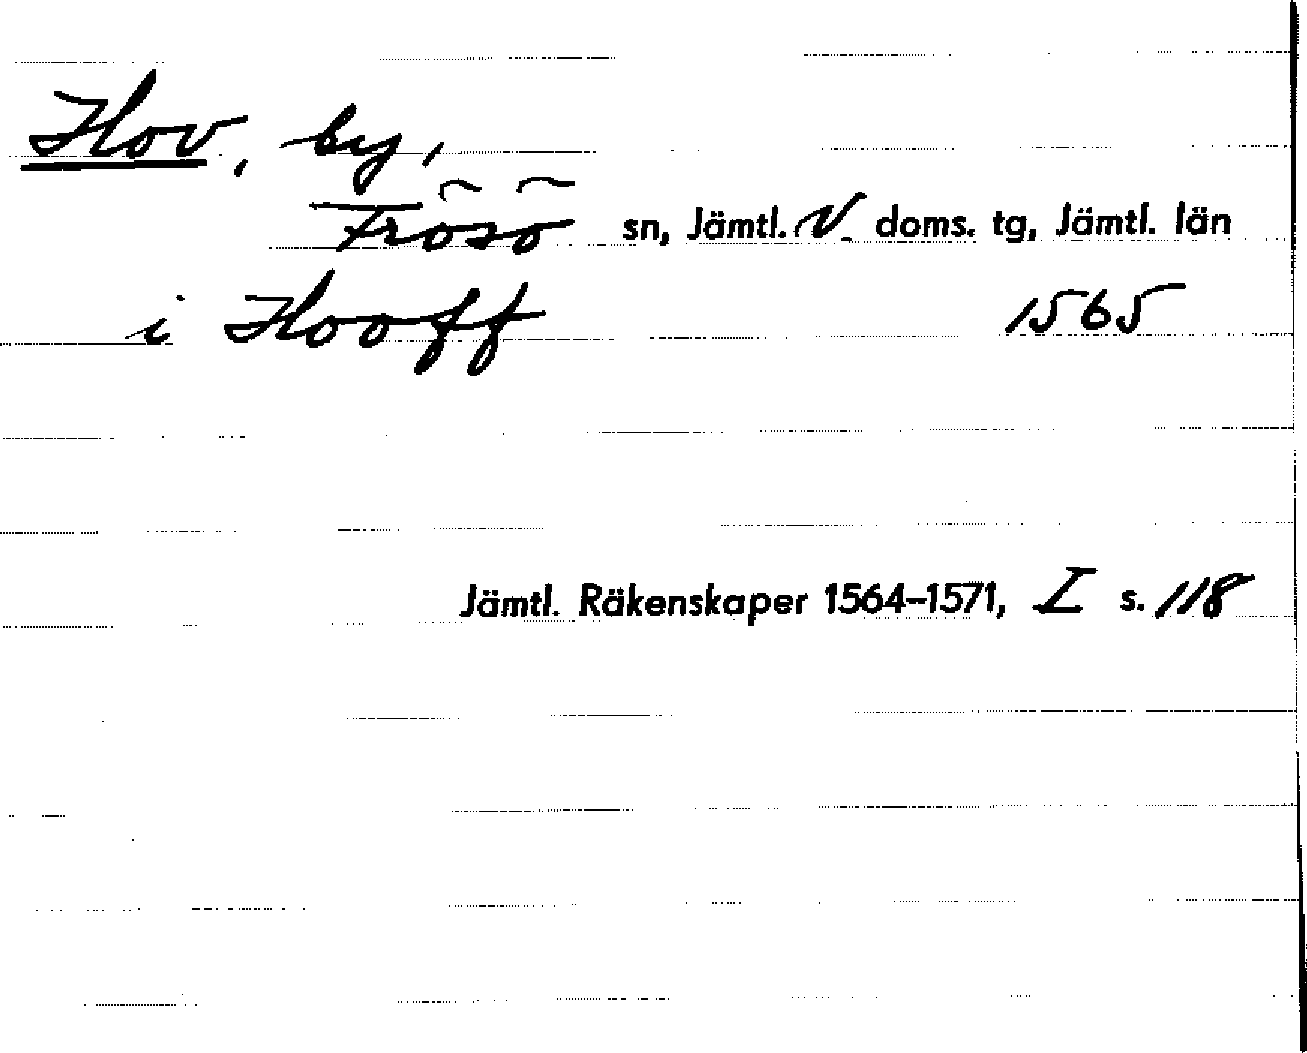 Hov, by,
Frösö sn, Jämtl. V. doms. tg, Jämtl. län
i Hooff 1565
Jämtl. Räkenskaper 1564–1571, I s. 118